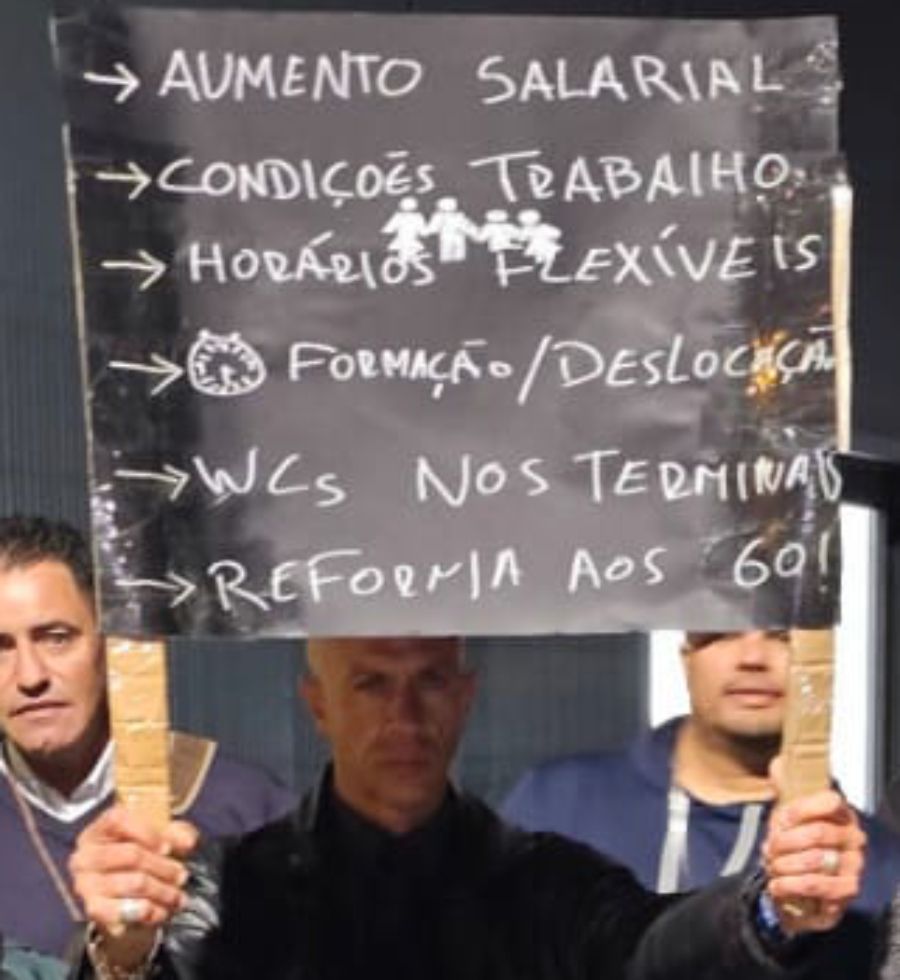 → AUMENTO SALARIAL
→ CONDIÇÕES TRABALHO
→ HORÁRIOS FLEXÍVEIS
→ FORMAÇÃO/DESLOCAÇÃO
→ WCs NOS TERMINAIS
→ REFORMA AOS 60!